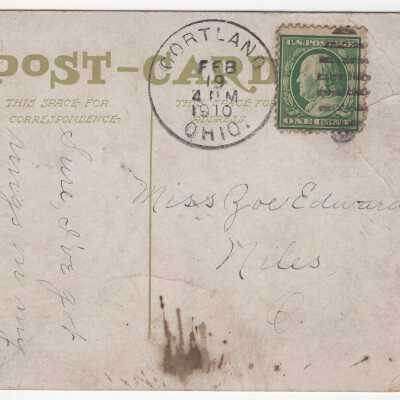 POST-CARD
THIS SPACE FOR
CORRESPONDENCE
THIS SPACE FOR
ADDRESS
CORTLAND
FEB
19
4 PM
1910
OHIO.
U.S. POSTAGE
ONE CENT
Miss Zoe Edward
Niles,
O.
Sure, I've got
rings on my